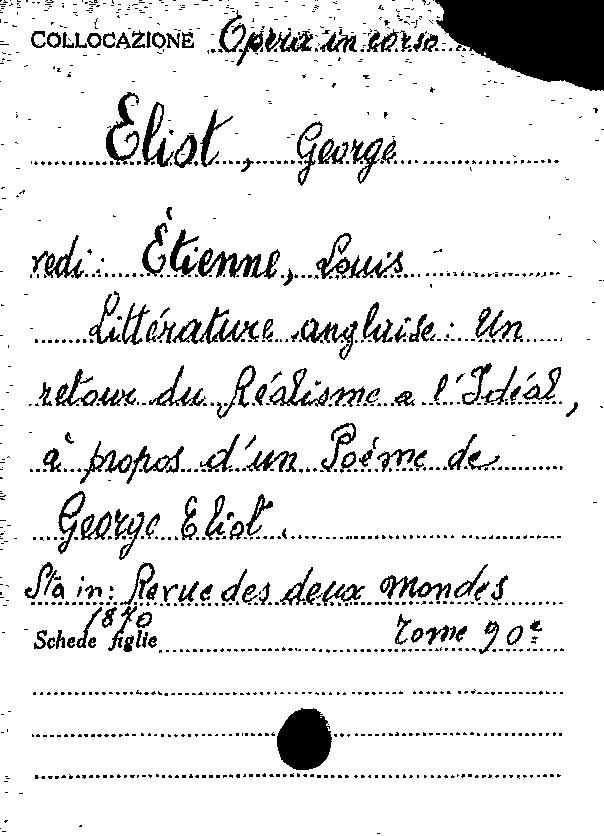 COLLOCAZIONE Opera in corso
Eliot, George
vedi: Étienne, Louis
Littérature anglaise: Un
retour du Réalisme a l'Idéal,
à propos d'un Poéme de
George Eliot.
Sta in: Revue des deux Mondes
1870
Schede figlie Tome 90e